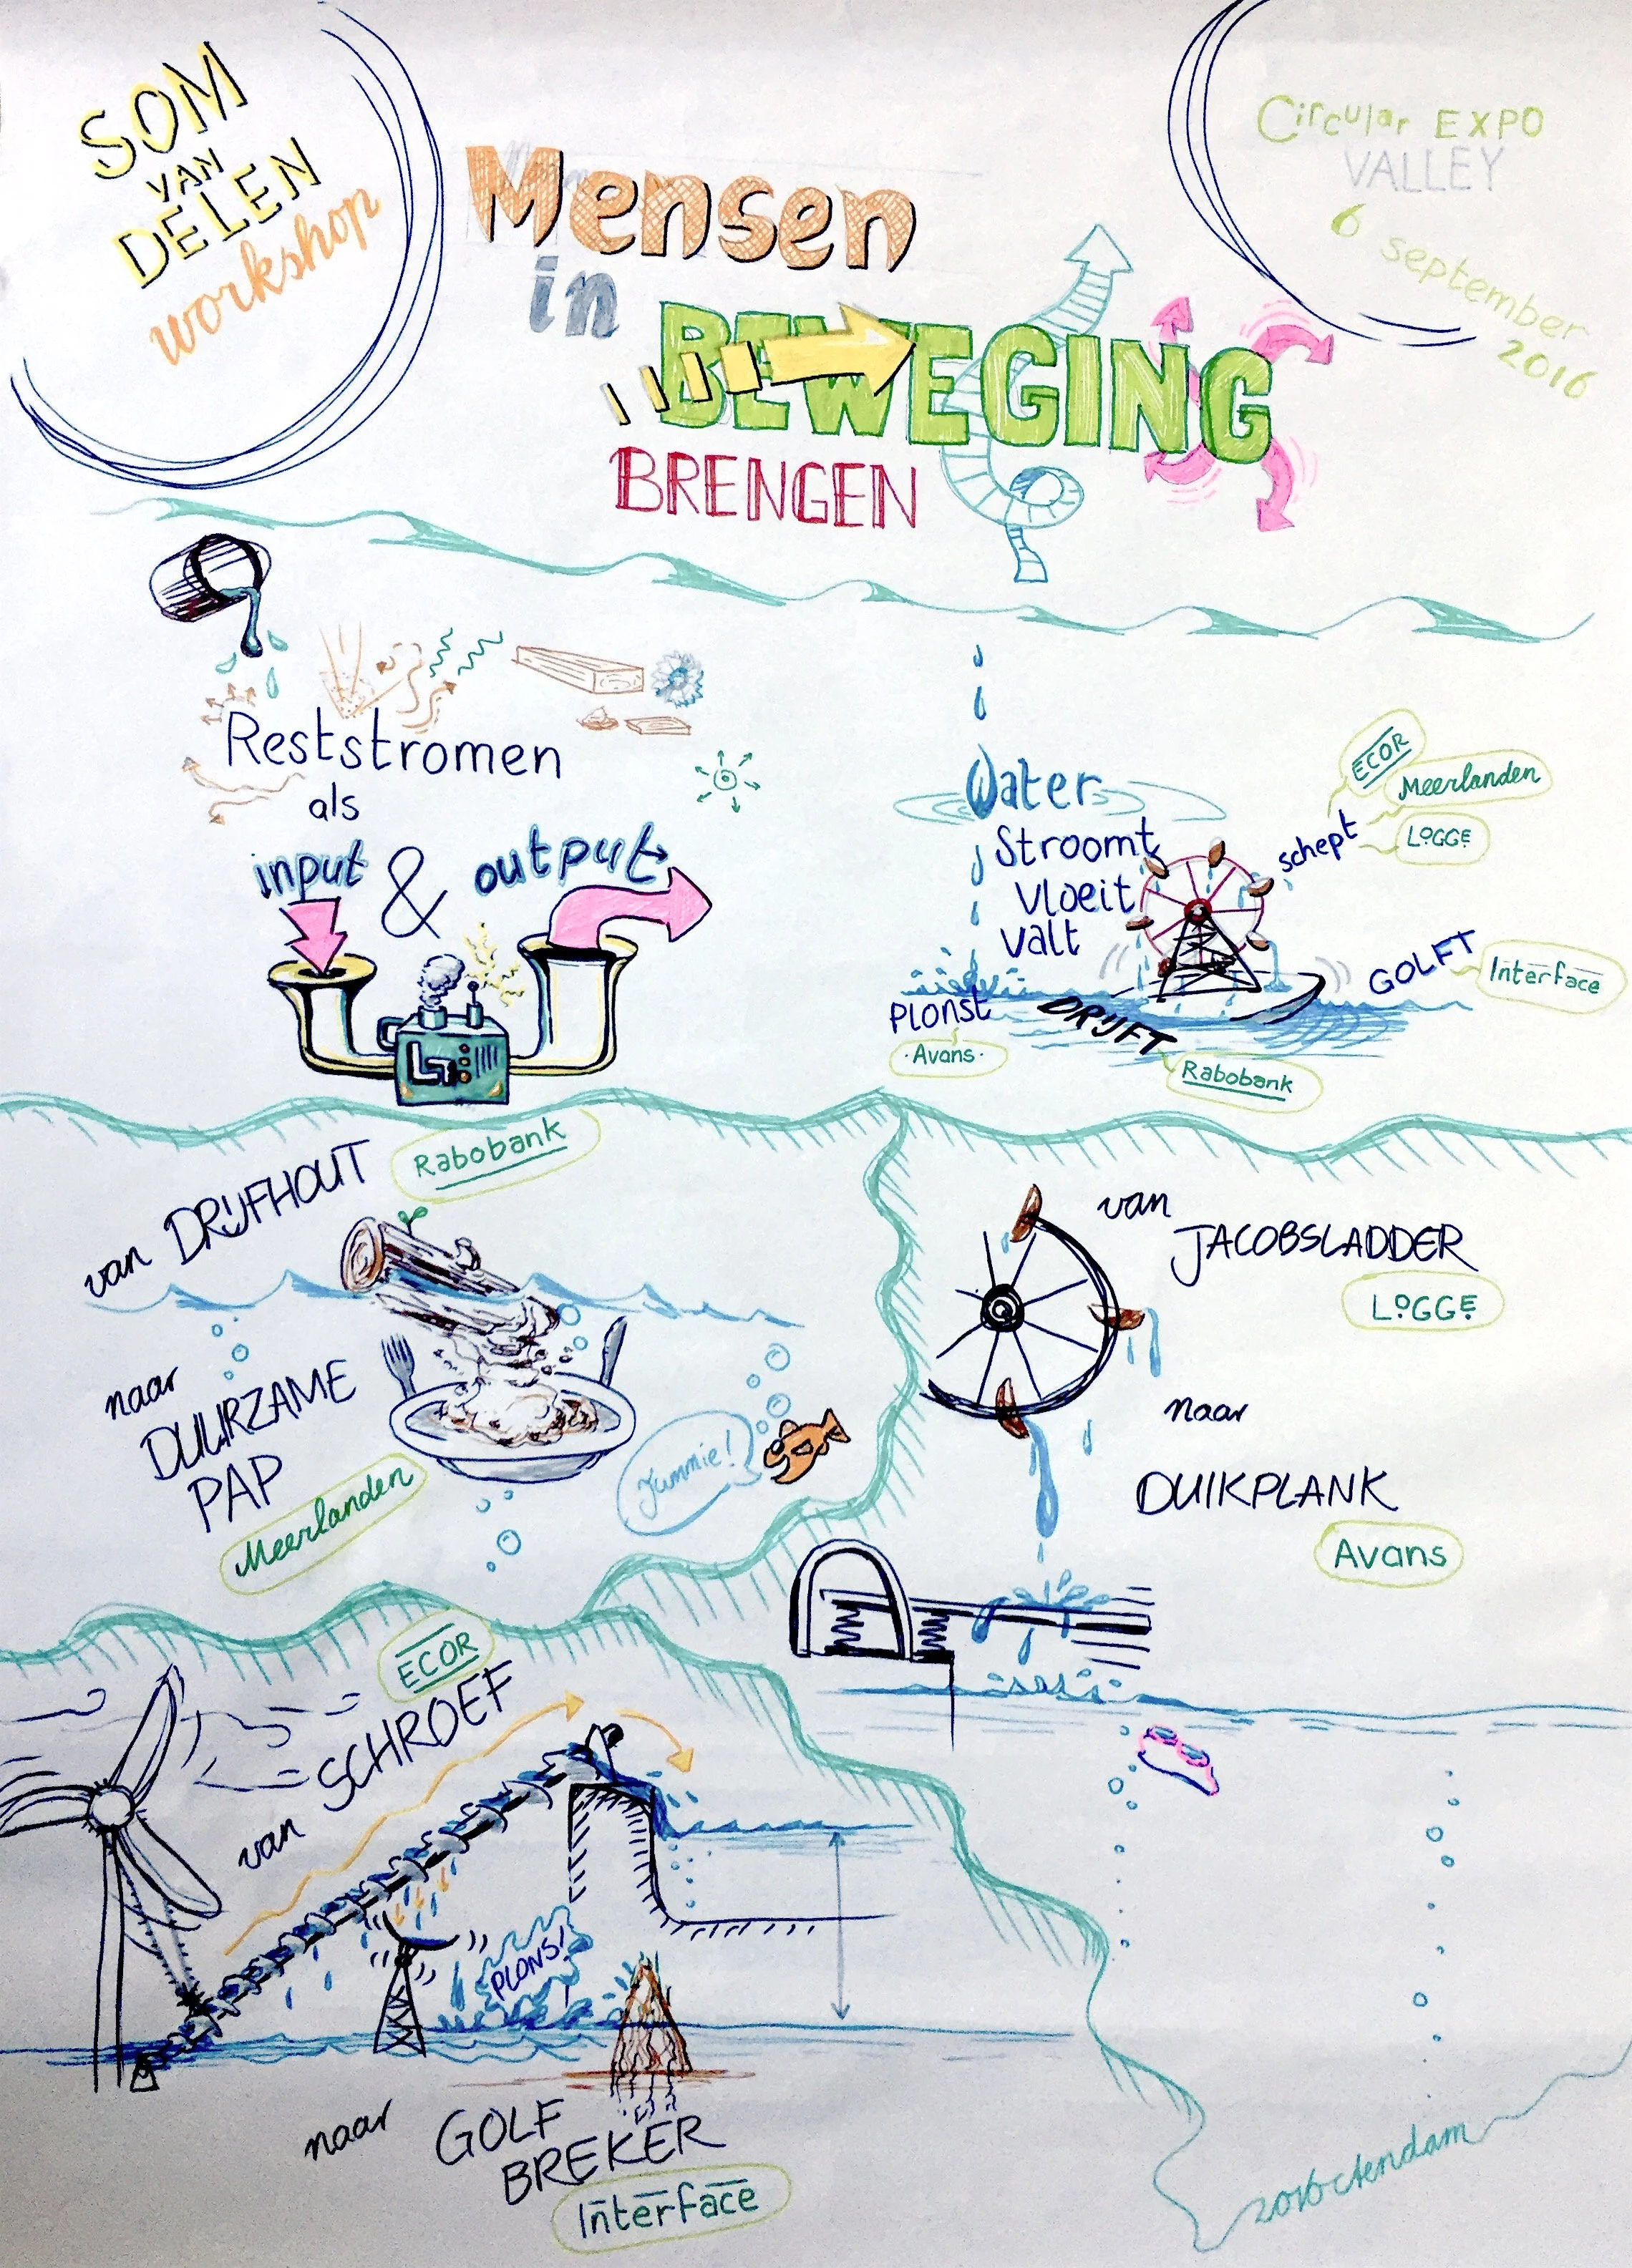 SOM
VAN
DELEN
workshop
Circular EXPO
VALLEY
6 september
2016
Mensen
in
BEWEGING
BRENGEN
Reststromen
als
input & output
Water
Stroomt
Vloeit
Valt
PLONST
Avans
DRIJFT
Rabobank
schept
ECOR
Meerlanden
LOGGE
GOLFT
Interface
van DRIJFHOUT
Rabobank
naar
DUURZAME
PAP
Meerlanden
Yummie!
van
JACOBSLADDER
LOGGE
naar
DUIKPLANK
Avans
ECOR
van SCHROEF
PLONS!
naar GOLF
BREKER
Interface